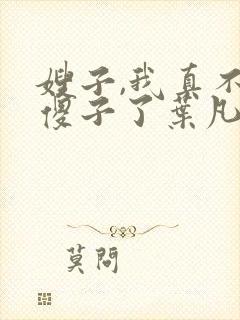 嫂子,我真不
傻子了葉凡
莫問